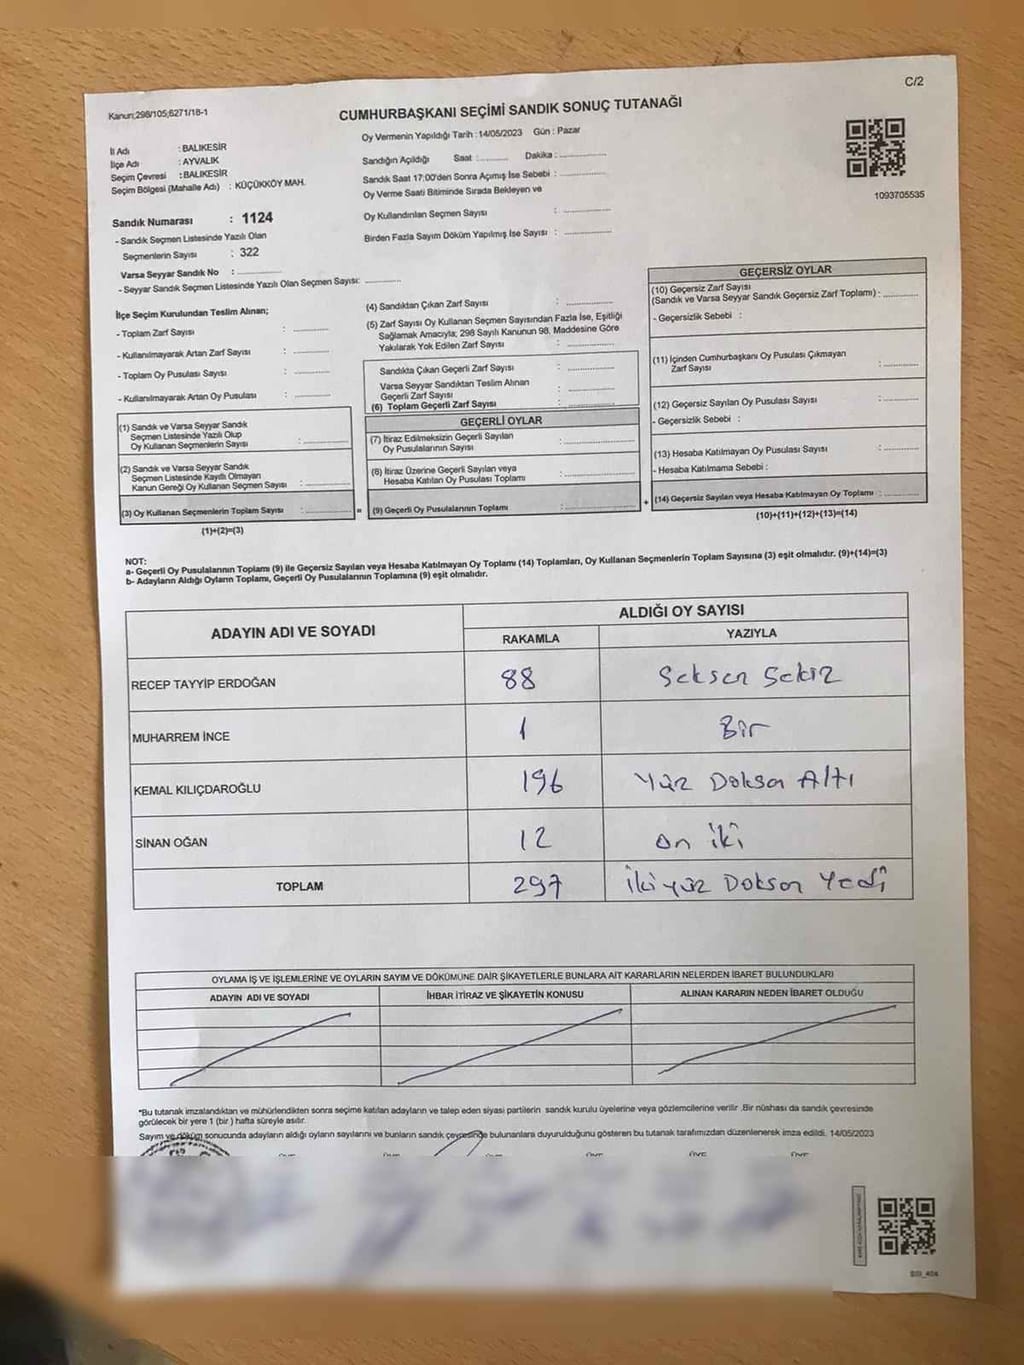 C/2
Kanun;298/105;6271/18-1
CUMHURBAŞKANI SEÇİMİ SANDIK SONUÇ TUTANAĞI
Oy Vermenin Yapıldığı Tarih : 14/05/2023 Gün : Pazar
İl Adı : BALIKESİR
İlçe Adı : AYVALIK
Seçim Çevresi : BALIKESİR
Seçim Bölgesi (Mahalle Adı) : KÜÇÜKKÖY MAH.
Sandık Numarası : 1124
- Sandık Seçmen Listesinde Yazılı Olan
Seçmenlerin Sayısı : 322
Varsa Seyyar Sandık No :
- Seyyar Sandık Seçmen Listesinde Yazılı Olan Seçmen Sayısı:
Sandığın Açıldığı Saat : Dakika :
Sandık Saat 17:00'den Sonra Açımış İse Sebebi :
Oy Verme Saati Bitiminde Sırada Bekleyen ve
Oy Kullandırılan Seçmen Sayısı :
Birden Fazla Sayım Döküm Yapılmış İse Sayısı :
1093705535
İlçe Seçim Kurulundan Teslim Alınan;
- Toplam Zarf Sayısı :
- Kullanılmayarak Artan Zarf Sayısı :
- Toplam Oy Pusulası Sayısı :
- Kullanılmayarak Artan Oy Pusulası :
(1) Sandık ve Varsa Seyyar Sandık
Seçmen Listesinde Yazılı Olup
Oy Kullanan Seçmenlerin Sayısı :
(2) Sandık ve Varsa Seyyar Sandık
Seçmen Listesinde Kayıtlı Olmayan
Kanun Gereği Oy Kullanan Seçmen Sayısı :
(3) Oy Kullanan Seçmenlerin Toplam Sayısı :
(1)+(2)=(3)
(4) Sandıktan Çıkan Zarf Sayısı :
(5) Zarf Sayısı Oy Kullanan Seçmen Sayısından Fazla İse, Eşitliği
Sağlamak Amacıyla; 298 Sayılı Kanunun 98. Maddesine Göre
Yakılarak Yok Edilen Zarf Sayısı :
Sandıkta Çıkan Geçerli Zarf Sayısı :
Varsa Seyyar Sandıktan Teslim Alınan
Geçerli Zarf Sayısı :
(6) Toplam Geçerli Zarf Sayısı :
GEÇERLİ OYLAR
(7) İtiraz Edilmeksizin Geçerli Sayılan
Oy Pusulalarının Sayısı :
(8) İtiraz Üzerine Geçerli Sayılan veya
Hesaba Katılan Oy Pusulası Toplamı :
= (9) Geçerli Oy Pusulalarının Toplamı :
GEÇERSİZ OYLAR
(10) Geçersiz Zarf Sayısı
(Sandık ve Varsa Seyyar Sandık Geçersiz Zarf Toplamı) :
- Geçersizlik Sebebi :
(11) İçinden Cumhurbaşkanı Oy Pusulası Çıkmayan
Zarf Sayısı :
(12) Geçersiz Sayılan Oy Pusulası Sayısı :
- Geçersizlik Sebebi :
(13) Hesaba Katılmayan Oy Pusulası Sayısı :
- Hesaba Katılmama Sebebi :
+ (14) Geçersiz Sayılan veya Hesaba Katılmayan Oy Toplamı :
(10)+(11)+(12)+(13)=(14)
NOT:
a- Geçerli Oy Pusulalarının Toplamı (9) ile Geçersiz Sayılan veya Hesaba Katılmayan Oy Toplamı (14) Toplamları, Oy Kullanan Seçmenlerin Toplam Sayısına (3) eşit olmalıdır. (9)+(14)=(3)
b- Adayların Aldığı Oyların Toplamı, Geçerli Oy Pusulalarının Toplamına (9) eşit olmalıdır.
ADAYIN ADI VE SOYADI ALDIĞI OY SAYISI
RAKAMLA YAZIYLA
RECEP TAYYİP ERDOĞAN 88 Seksen Sekiz
MUHARREM İNCE 1 Bir
KEMAL KILIÇDAROĞLU 196 Yüz Doksan Altı
SİNAN OĞAN 12 On iki
TOPLAM 297 İki yüz Doksan Yedi
OYLAMA İŞ VE İŞLEMLERİNE VE OYLARIN SAYIM VE DÖKÜMÜNE DAİR ŞİKAYETLERLE BUNLARA AİT KARARLARIN NELERDEN İBARET BULUNDUKLARI
ADAYIN ADI VE SOYADI İHBAR İTİRAZ VE ŞİKAYETİN KONUSU ALINAN KARARIN NEDEN İBARET OLDUĞU
*Bu tutanak imzalandıktan ve mühürlendikten sonra seçime katılan adayların ve talep eden siyasi partilerin sandık kurulu üyelerine veya gözlemcilerine verilir .Bir nüshası da sandık çevresinde
görülecek bir yere 1 (bir ) hafta süreyle asılır.
Sayım ve döküm sonucunda adayların aldığı oyların sayılarını ve bunların sandık çevresinde bulunanlara duyurulduğunu gösteren bu tutanak tarafımızdan düzenlenerek imza edildi. 14/05/2023